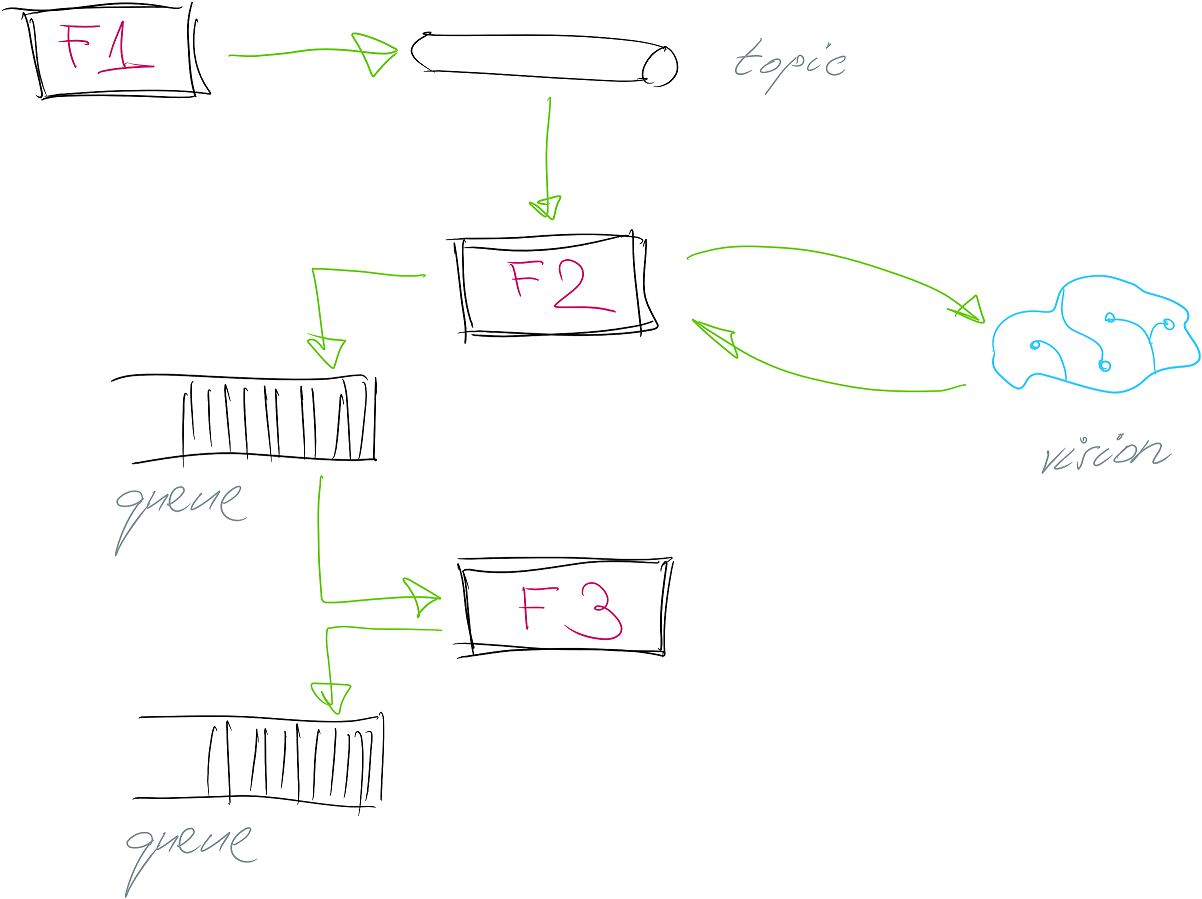 F1
topic
F2
vision
queue
F3
queue